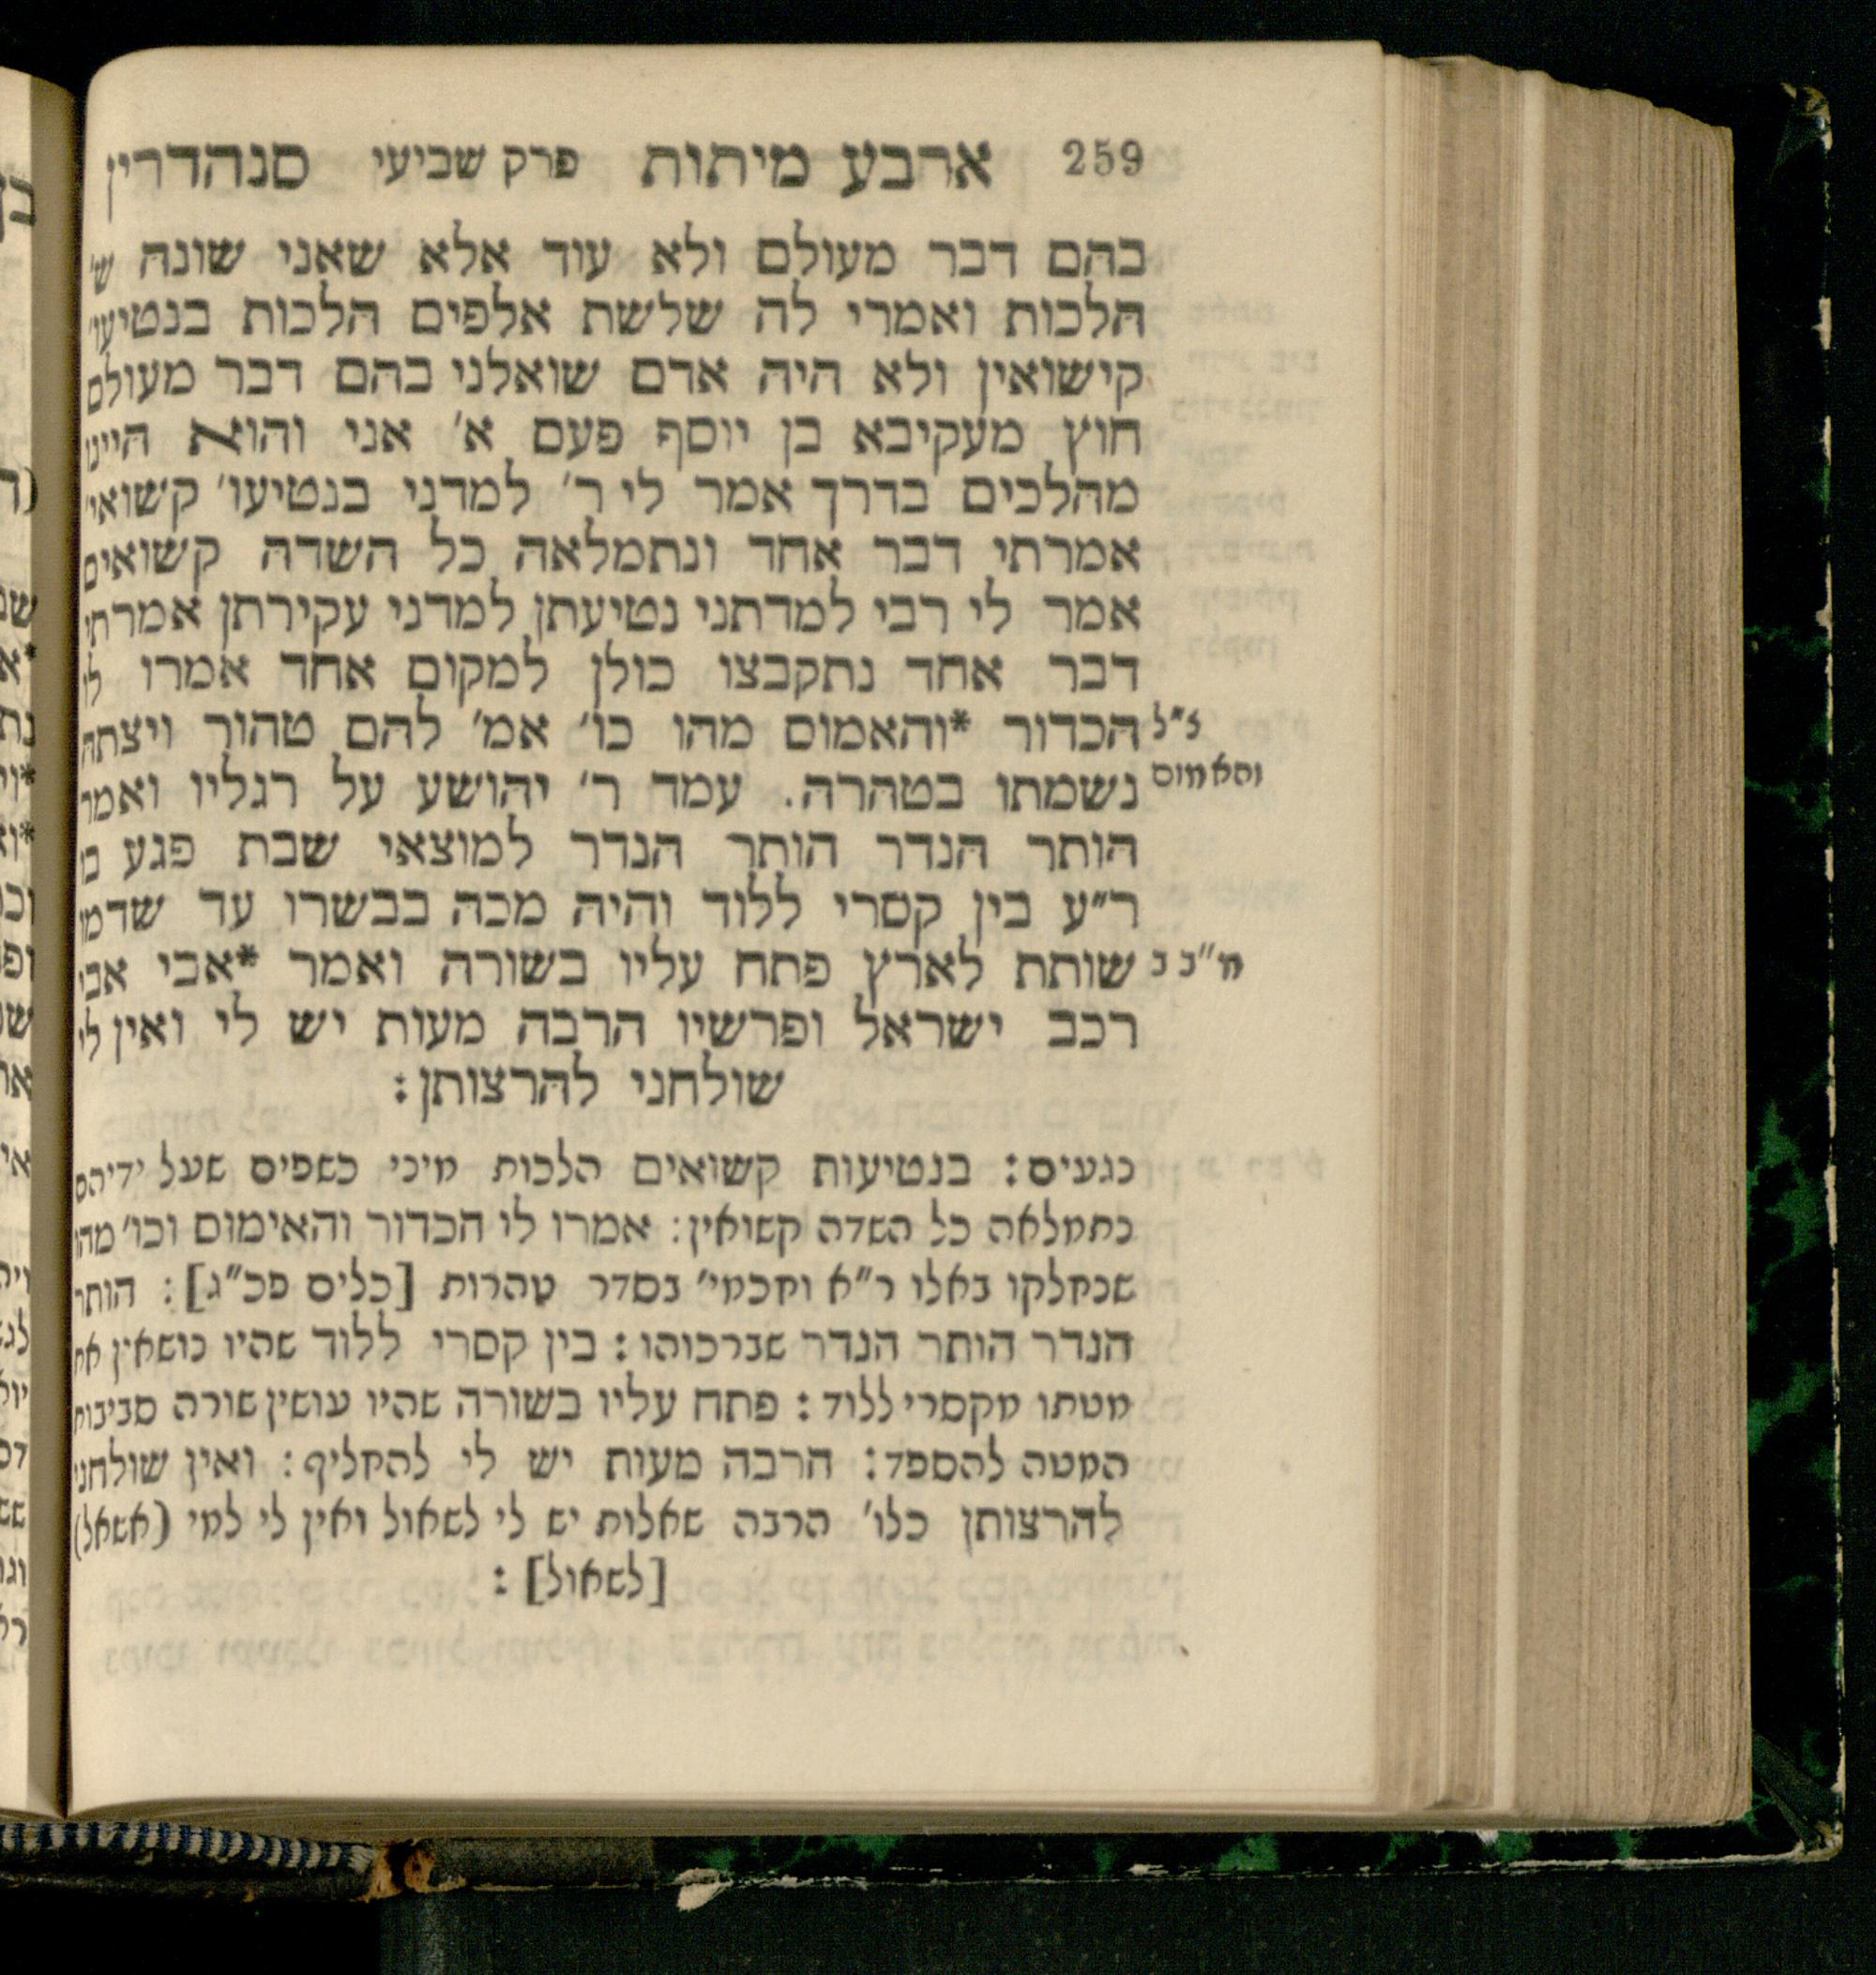 259 ארבע מיתות פרק שביעי סנהדרין
בהם דבר מעולם ולא עוד אלא שאני שונה ש'
הלכות ואמרי לה שלשת אלפים הלכות בנטיעו'
קישואין ולא היה אדם שואלני בהם דבר מעולם
חוץ מעקיבא בן יוסף פעם א' אני והוא היינו
מהלכים בדרך אמר לי ר' למדני בנטיעו' קשואי'
אמרתי דבר אחד ונתמלאה כל השדה קשואים
אמר לי רבי למדתני נטיעתן למדני עקירתן אמרתי
דבר אחד נתקבצו כולן למקום אחד אמרו לו
הכדור *והאמום מהו כו' אמ' להם טהור ויצתה
נשמתו בטהרה. עמד ר' יהושע על רגליו ואמר
הותר הנדר הותר הנדר למוצאי שבת פגע בו
ר"ע בין קסרי ללוד והיה מכה בבשרו עד שדמו
שותת לארץ פתח עליו בשורה ואמר *אבי אבי
רכב ישראל ופרשיו הרבה מעות יש לי ואין לי
שולחני להרצותן:
ז"ל
והאמום
מ"ב ב
נגעים: בנטיעות קשואים הלכות מיני כשפים שעל ידיהם
נתמלאה כל השדה קשואין: אמרו לו הכדור והאימום וכו' מהו
שנחלקו באלו ר"א וחכמי' בסדר טהרות [כלים פכ"ג]: הותר
הנדר הותר הנדר שברכוהו: בין קסרי ללוד שהיו נושאין את
מטתו מקסרי ללוד: פתח עליו בשורה שהיו עושין שורה סביבות
המטה להספד: הרבה מעות יש לי להחליף: ואין שולחני
להרצותן כלו' הרבה שאלות יש לי לשאול ואין לי למי (אשאל)
[לשאול]: